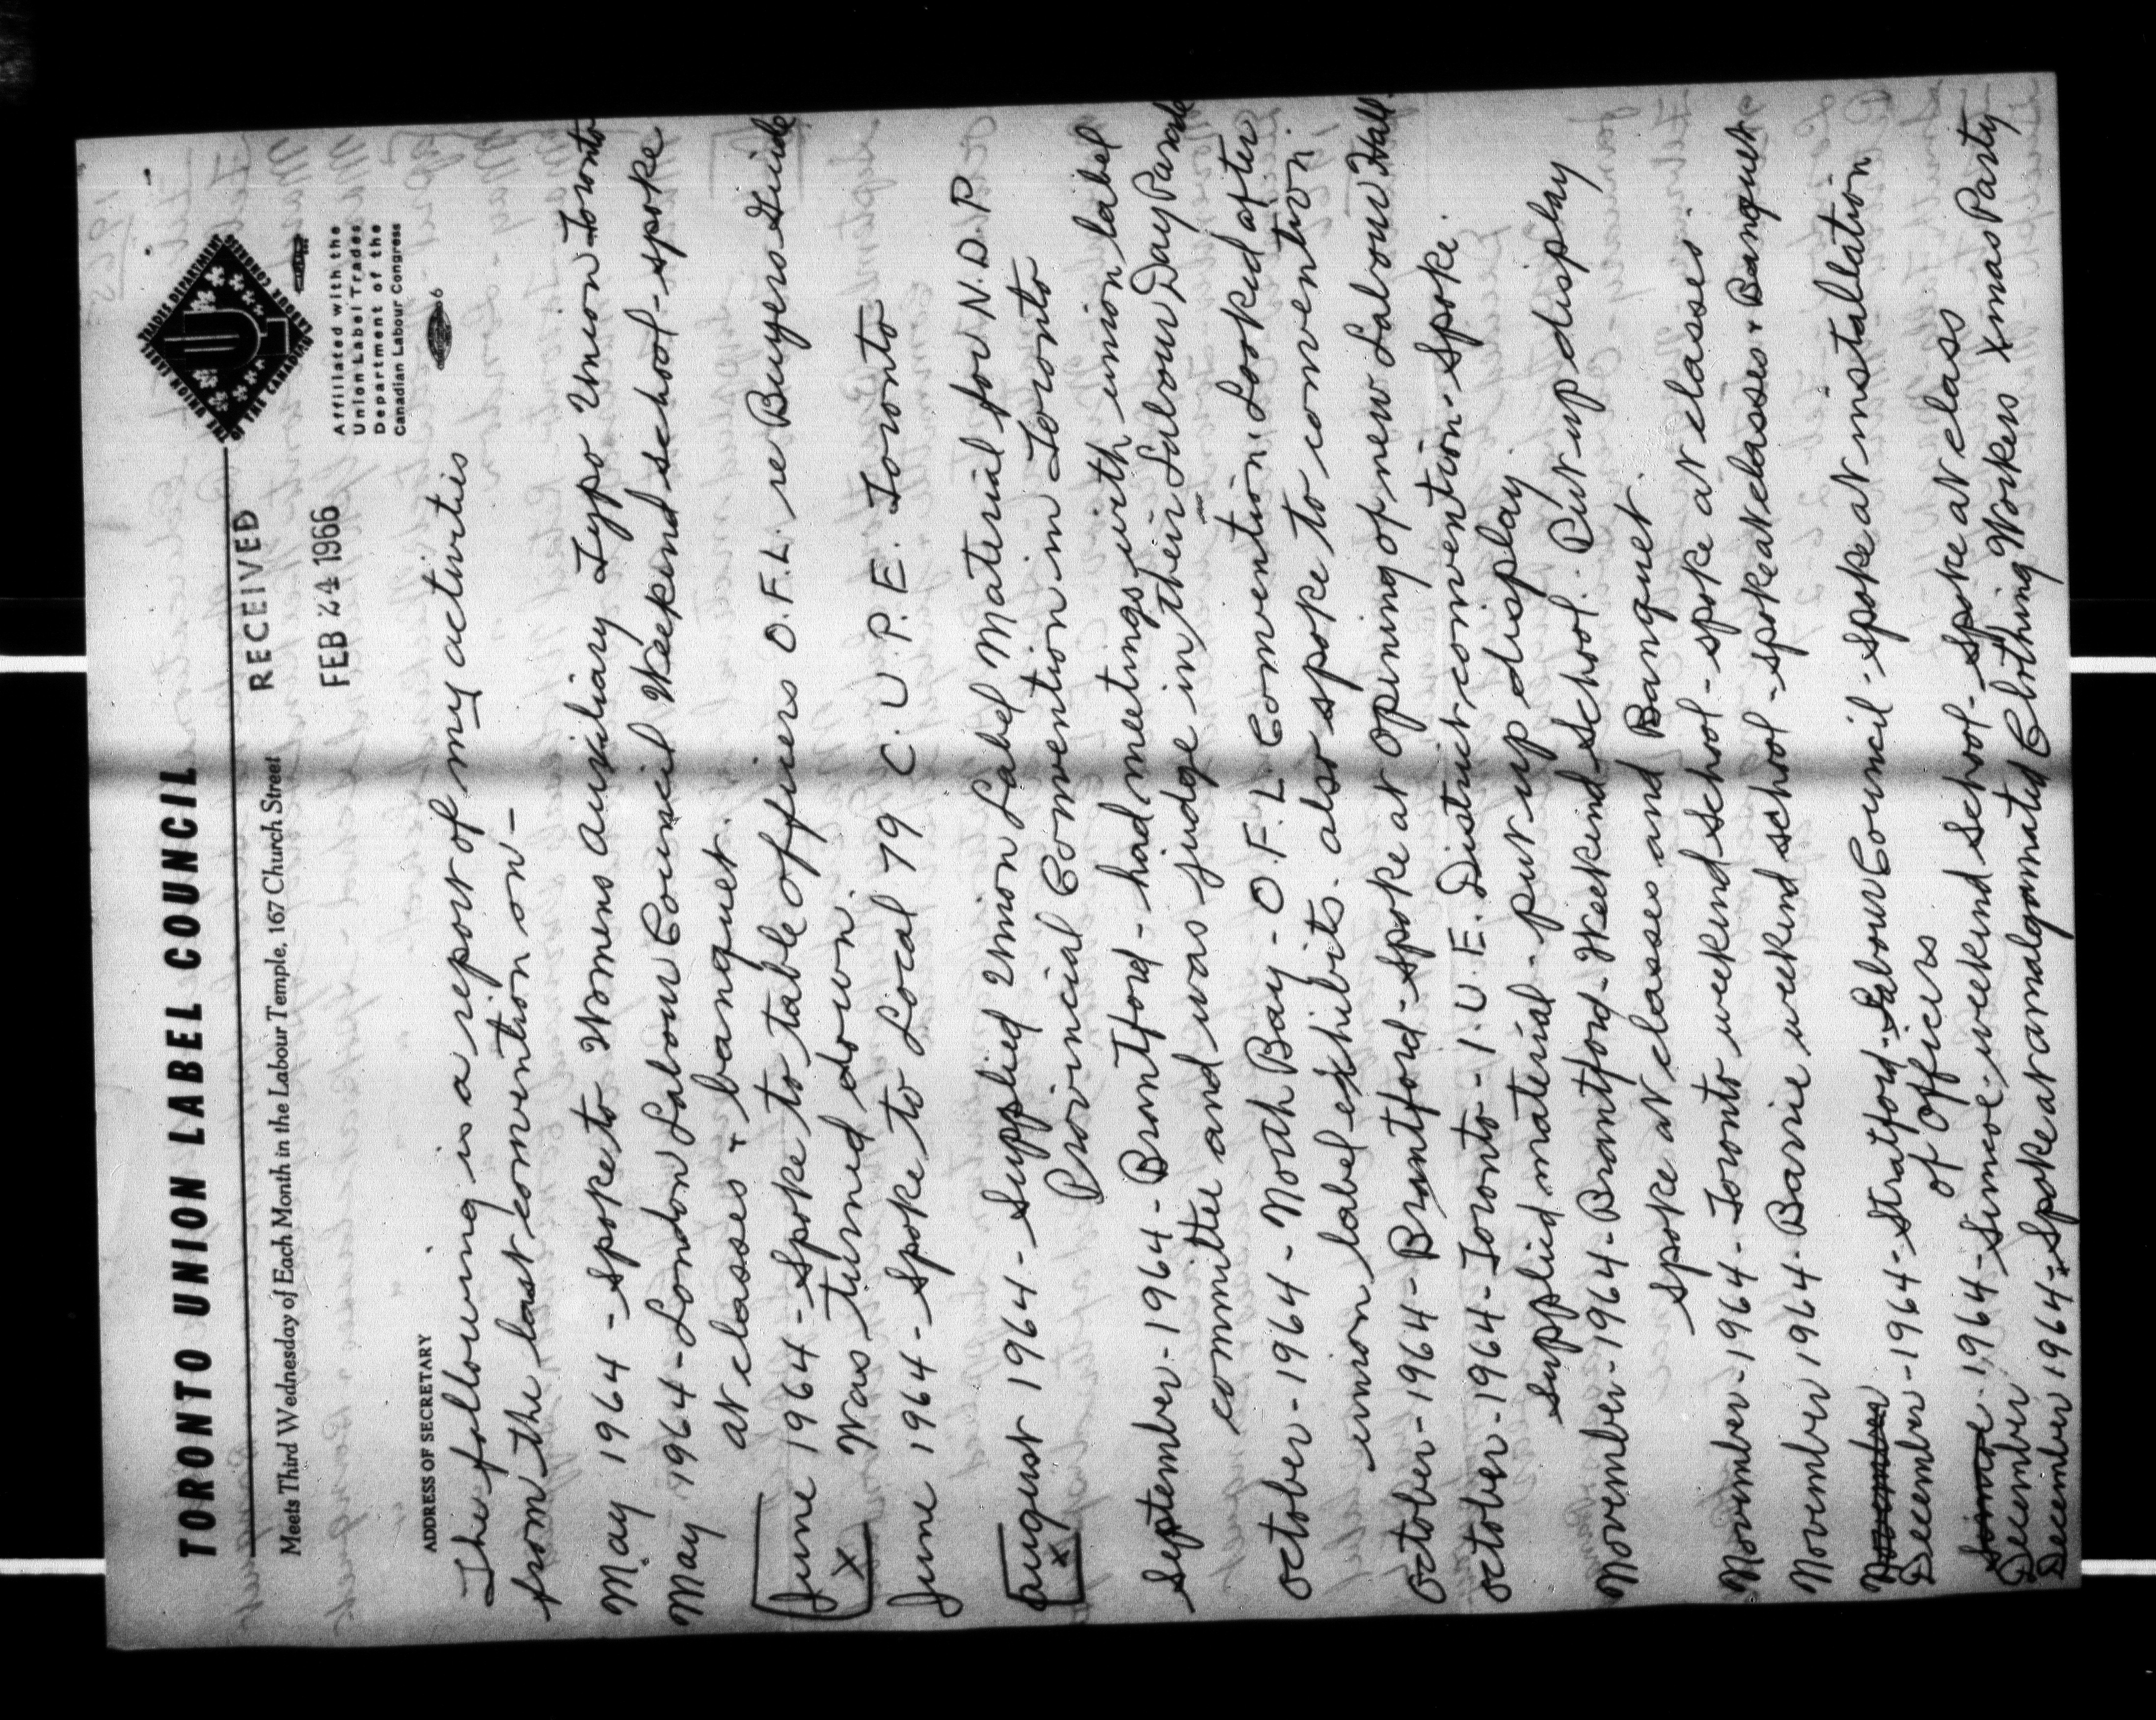 TORONTO UNION LABEL COUNCIL
Meets Third Wednesday of Each Month in the Labour Temple, 167 Church Street
THE UNION LABEL TRADES DEPARTMENT
OF THE CANADIAN LABOUR CONGRESS
Affiliated with the
Union Label Trades
Department of the
Canadian Labour Congress
6
RECEIVED
FEB 24 1966
ADDRESS OF SECRETARY
The following is a report of my activities
from the last convention on -
May 1964 - Spoke to Womens Auxiliary Typo Union Toronto
May 1964 - London Labour Council Weekend school - spoke
at classes + banquet.
June 1964 - Spoke to table officers O.F.L. re Buyers Guide
x Was turned down.
June 1964 - Spoke to Local 79 C.U.P.E. Toronto
August 1964 - Supplied Union Label Material for N.D.P.
x Provincial Convention in Toronto
September - 1964 - Brantford - had meetings with union label
committee and was judge in their Labour Day Parade
October - 1964 - North Bay - O.F.L. Convention. Looked after
union label exhibits. also spoke to convention.
October - 1964 - Brantford - Spoke at opening of new Labour Hall.
October - 1964 - Toronto - I.U.E. District convention - Spoke.
Supplied material - put up display.
November - 1964 - Brantford - Weekend School. Put up display
Spoke at classes and Banquet.
November - 1964 - Toronto weekend school - spoke at classes.
November 1964 - Barrie weekend school - spoke at classes + Banquet
November
December - 1964 - Stratford - Labour Council - spoke at installation
of officers
Simcoe - 1964 - Simcoe - weekend school - spoke at class
December
December 1964 - Spoke at amalgamated Clothing Workers Xmas Party